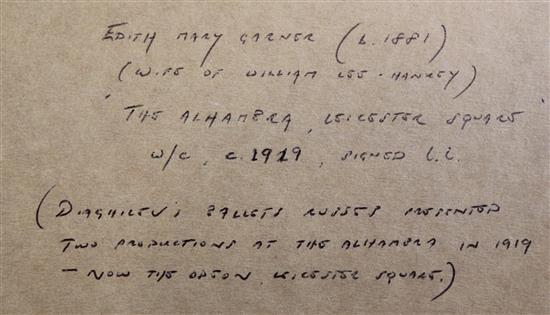 EDITH MARY GARNER (b. 1881)
(WIFE OF WILLIAM LEE-HANKEY)
'THE ALHAMBRA, LEICESTER SQUARE'
w/c, c.1919, SIGNED l.l.
(DIAGHILEV'S BALLETS RUSSES PRESENTED
TWO PRODUCTIONS AT THE ALHAMBRA IN 1919
– NOW THE ODEON, LEICESTER SQUARE.)